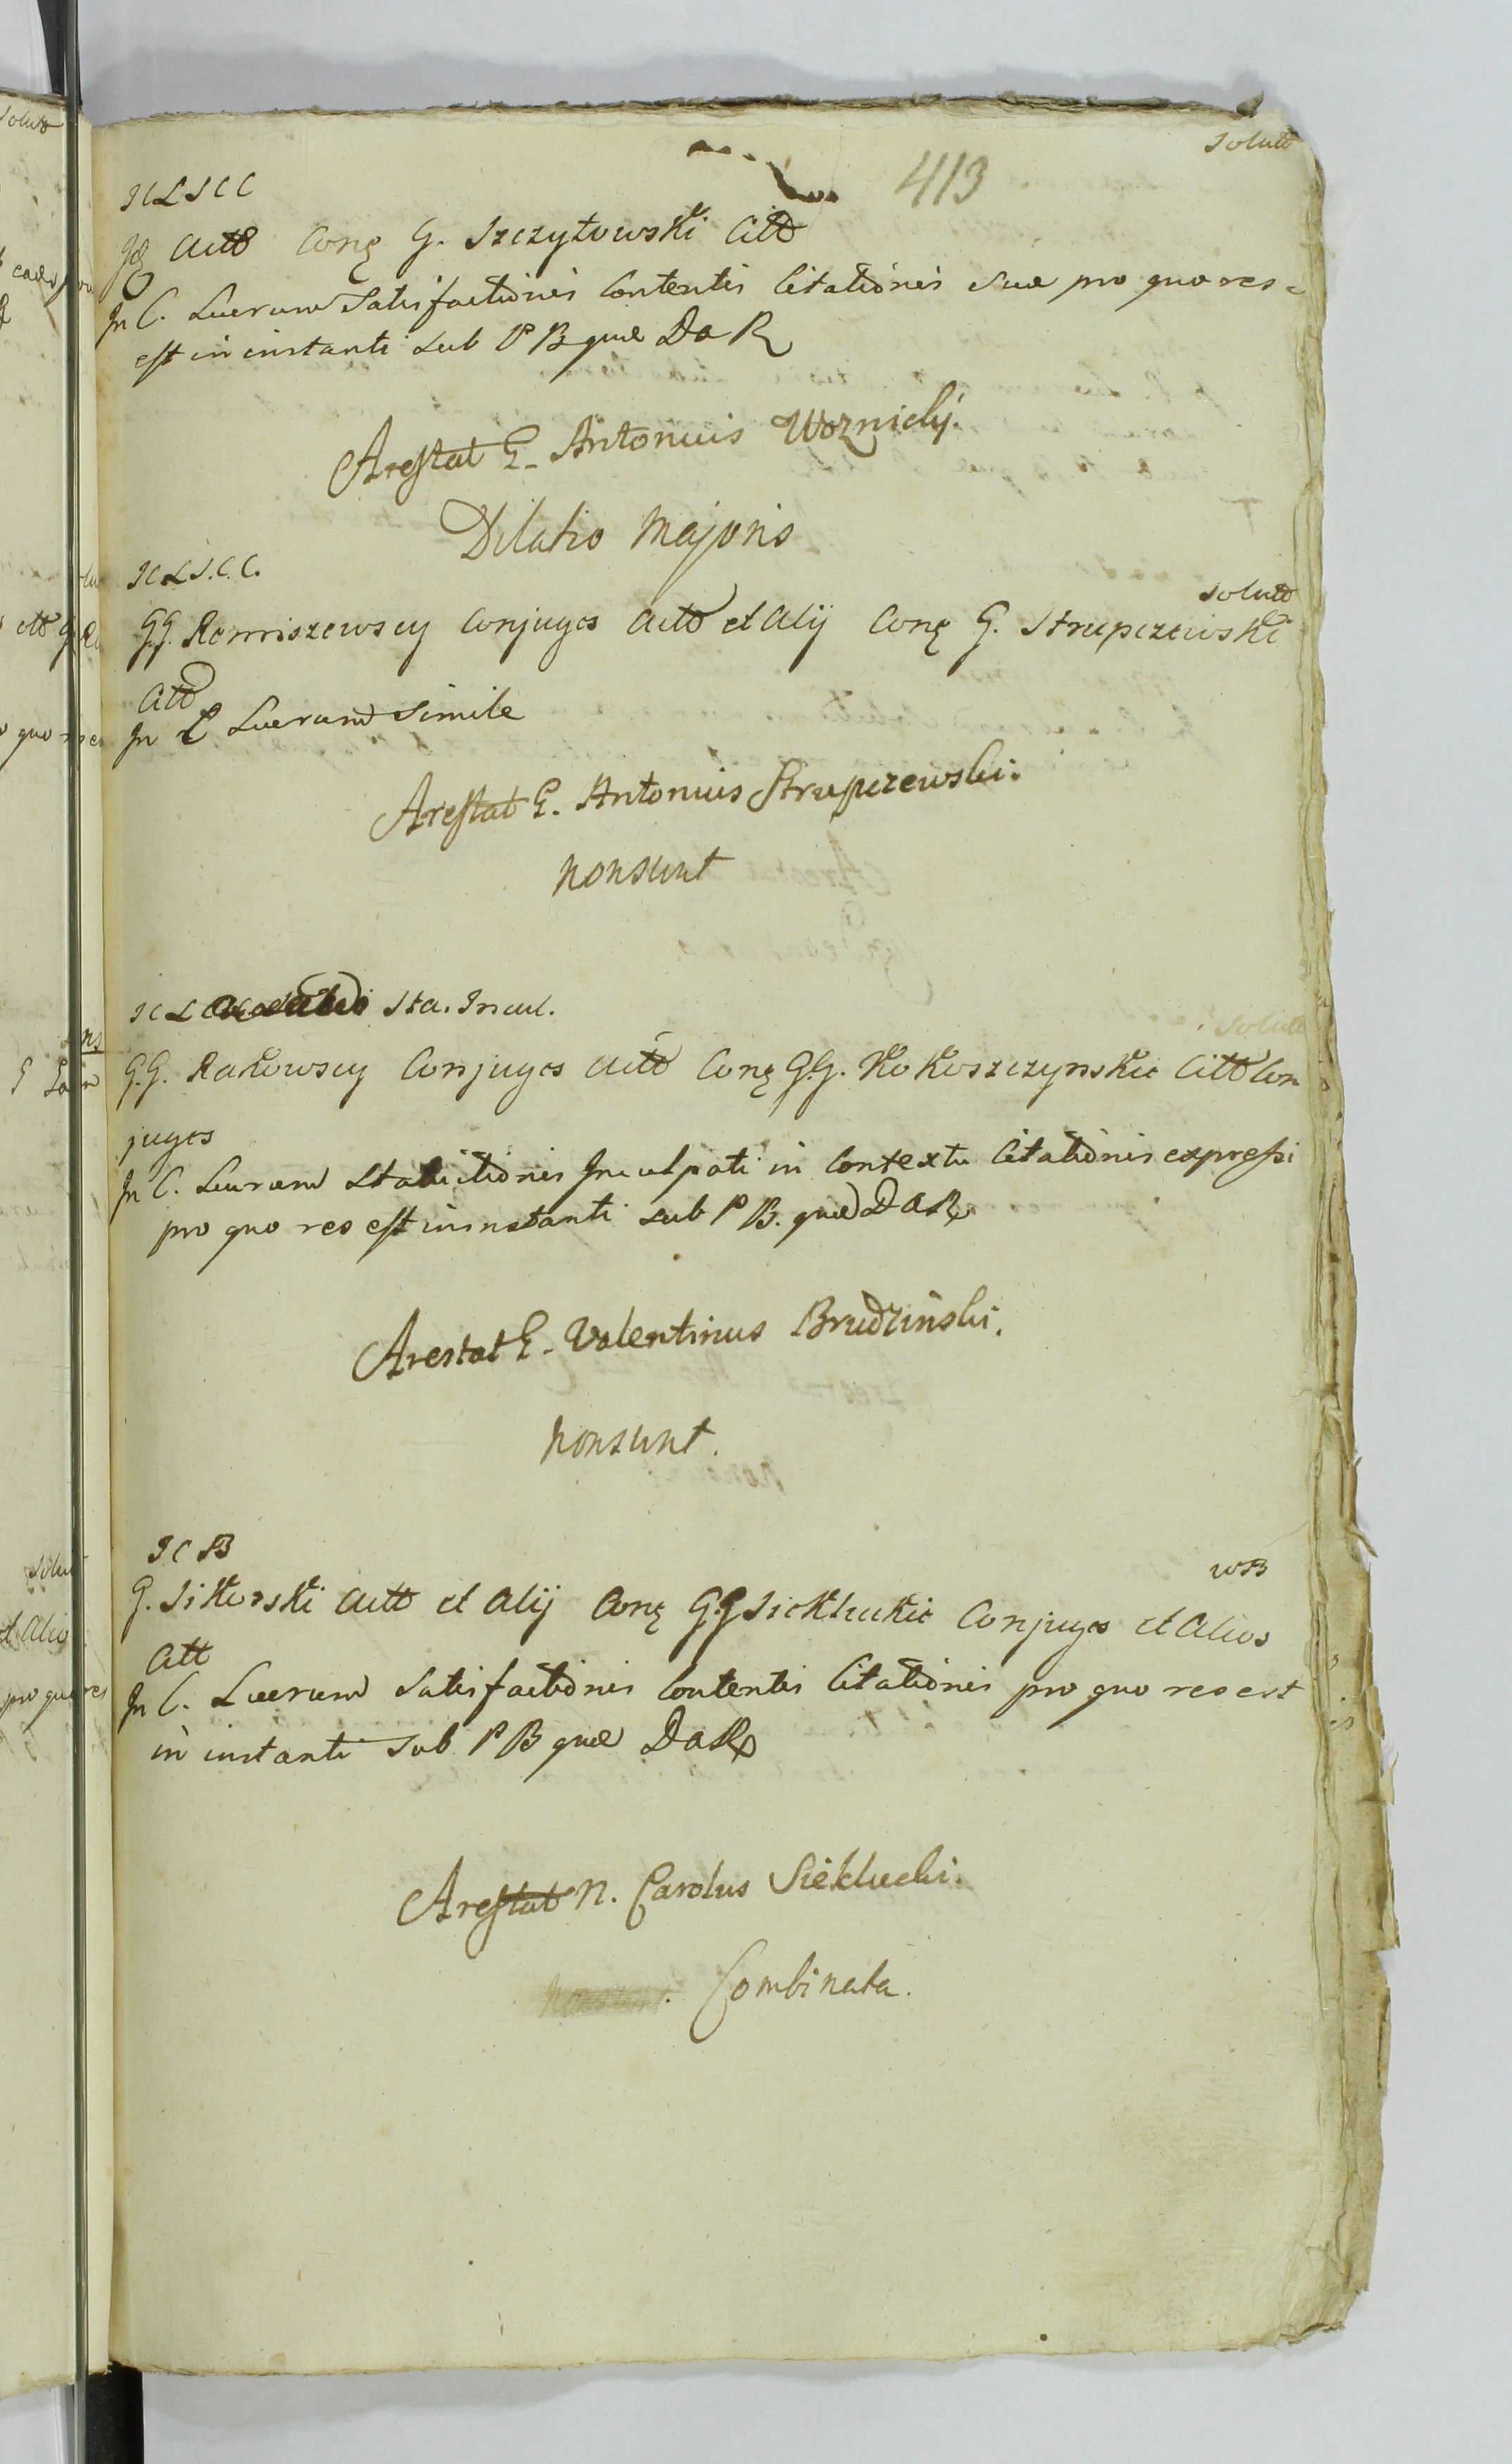 413
solutt
J C L S C C
Jg Actt Cong G. Szczytowski Citt
In C. Lucrum Satisfactionis Contentis Citationis sua pro quo res
est in instanti sub P B qua Da R
Arestat G. Antonius Woznicky.
Dilatio Majoris
J C L S. C. C.
solutt
G.G. Romiszewscy Conjuges Actt et Alij Cong G. Strupczewski
Citt
In C Lucrum Simile
Arestat G. Antonius Strupczewski.
non sunt
J C L Sta. Incul.
solutt
G.G. Rakowscy Conjuges Actt Cong G.G. Kokoszczynskie Citt Con
juges
In C. Lucrum Statuitionis Inculpati in Contextu Citationis expressi
pro quo res est in instanti sub P B. qua Da R
Arestat G. Valentinus Brudzinski.
non sunt.
J C B
w B
G. Sikorski Actt et Alij Cong G.G Siekluckie Conjuges et Alios
Citt
In C. Lucrum Satisfactionis Contentis Citationis pro quo res est
in instanti sub P B qua Da R
Arestat N. Carolus Sieklucki.
Combinata.